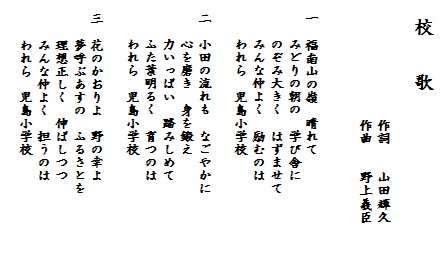 校歌
作詞　山田輝久
作曲　野上義臣
一　福南山の嶺　晴れて
みどりの朝の　学び舎に
のぞみ大きく　はずませて
みんな仲よく　励むのは
われら　児島小学校
二　小田の流れも　なごやかに
心を磨き　身を鍛え
力いっぱい　踏みしめて
ふた葉明るく　育つのは
われら　児島小学校
三　花のかおりよ　野の幸よ
夢呼ぶあすの　ふるさとを
理想正しく　伸ばしつつ
みんな仲よく　担うのは
われら　児島小学校